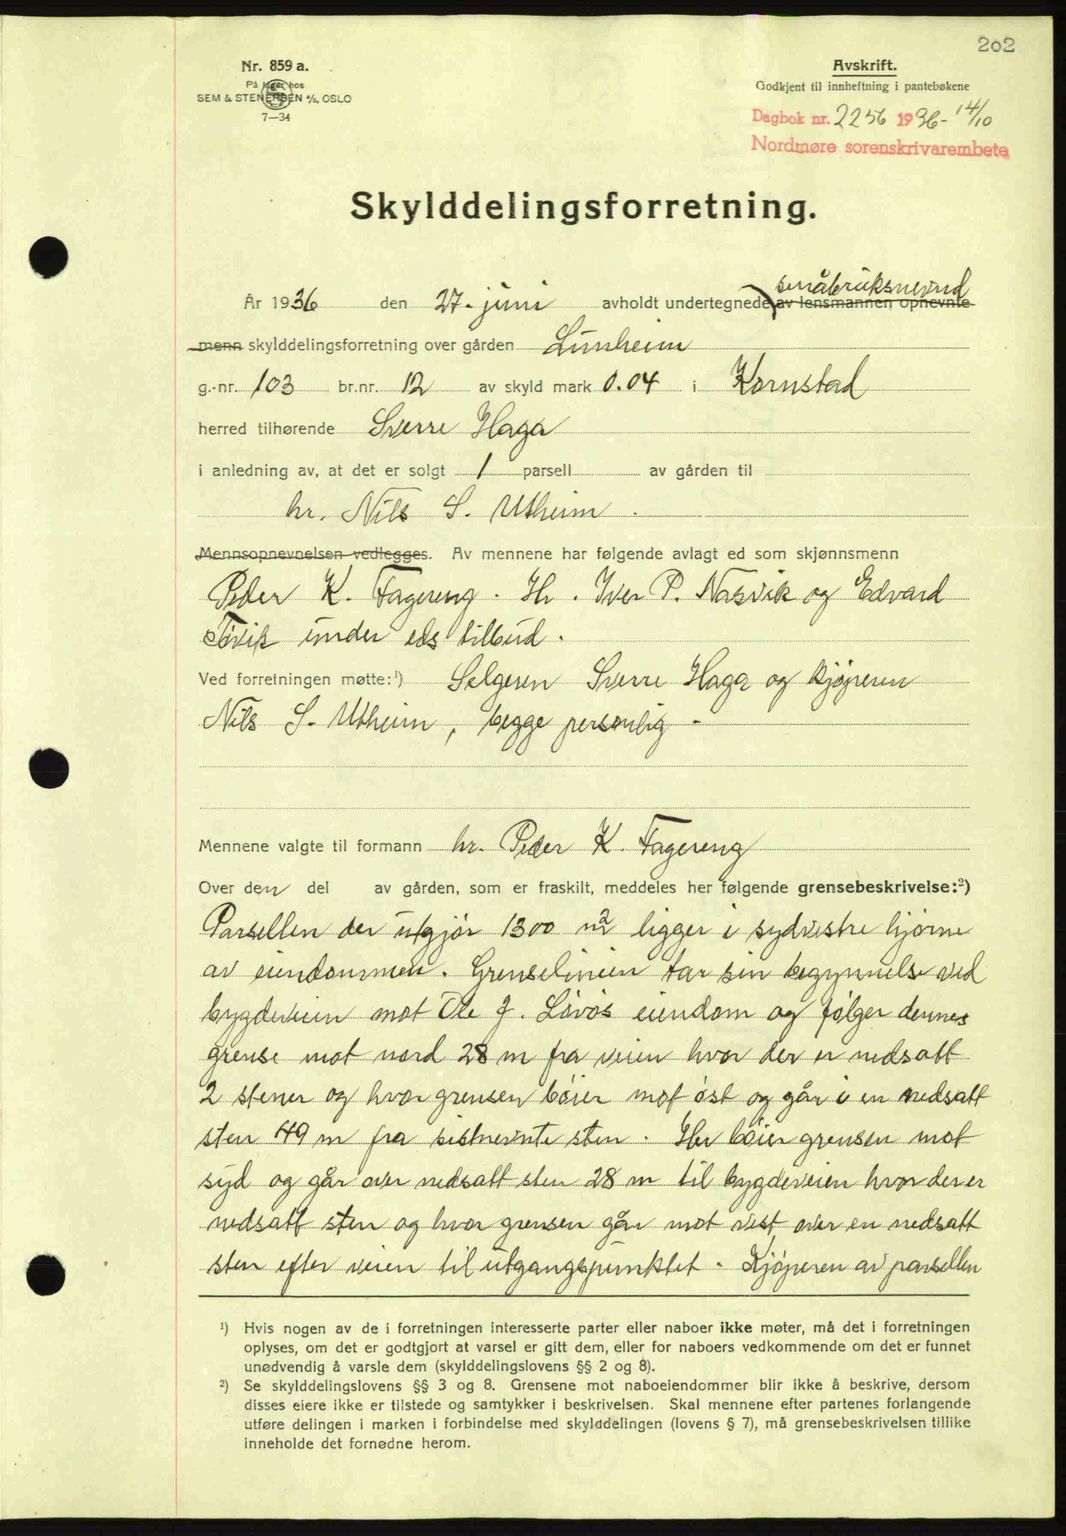 202
Nr. 859 a.
På lager hos
SEM & STENERSEN A/S, OSLO
7—34
Avskrift.
Godkjent til innheftning i pantebøkene
Dagbok nr. 2256 1936 - 14/10
Nordmøre sorenskrivarembete
Skylddelingsforretning.
småbruksnevnd
År 1936 den 27. juni avholdt undertegnede av lensmannen opnevnte
menn skylddelingsforretning over gården Lunheim
g.-nr. 103 br.nr. 12 av skyld mark 0.04 i Kornstad
herred tilhørende Sverre Haga
i anledning av, at det er solgt 1 parsell av gården til
hr. Nils S. Utheim.
Mennsopnevnelsen vedlegges. Av mennene har følgende avlagt ed som skjønnsmenn
Peder K. Fagereng. Hr. Iver P. Nasvik og Edvard
Tøvik under eds tilbud.
Ved forretningen møtte:¹) Selgeren Sverre Haga og kjøperen
Nils S. Utheim, begge personlig -
Mennene valgte til formann hr. Peder K. Fagereng
Over den del av gården, som er fraskilt, meddeles her følgende grensebeskrivelse:²)
Parsellen der utgjør 1300 m² ligger i sydvestre hjørne
av eiendommen. Grenselinien tar sin begynnelse ved
bygdeveien mot Ole J. Løvøs eiendom og følger dennes
grense mot nord 28 m fra veien hvor der er nedsatt
2 stener og hvor grensen bøier mot øst og går i en nedsatt
sten 49 m fra sistnevnte sten. Her bøier grensen mot
syd og går over nedsatt sten 28 m til bygdeveien hvor der er
nedsatt sten og hvor grensen går mot vest over en nedsatt
sten efter veien til utgangspunktet. Kjøperen av parsellen
¹) Hvis nogen av de i forretningen interesserte parter eller naboer ikke møter, må det i forretningen
oplyses, om det er godtgjort at varsel er gitt dem, eller for naboers vedkommende om det er funnet
unødvendig å varsle dem (skylddelingslovens §§ 2 og 8).
²) Se skylddelingslovens §§ 3 og 8. Grensene mot naboeiendommer blir ikke å beskrive, dersom
disses eiere ikke er tilstede og samtykker i beskrivelsen. Skal mennene efter partenes forlangende
utføre delingen i marken i forbindelse med skylddelingen (lovens § 7), må grensebeskrivelsen tillike
inneholde det fornødne herom.